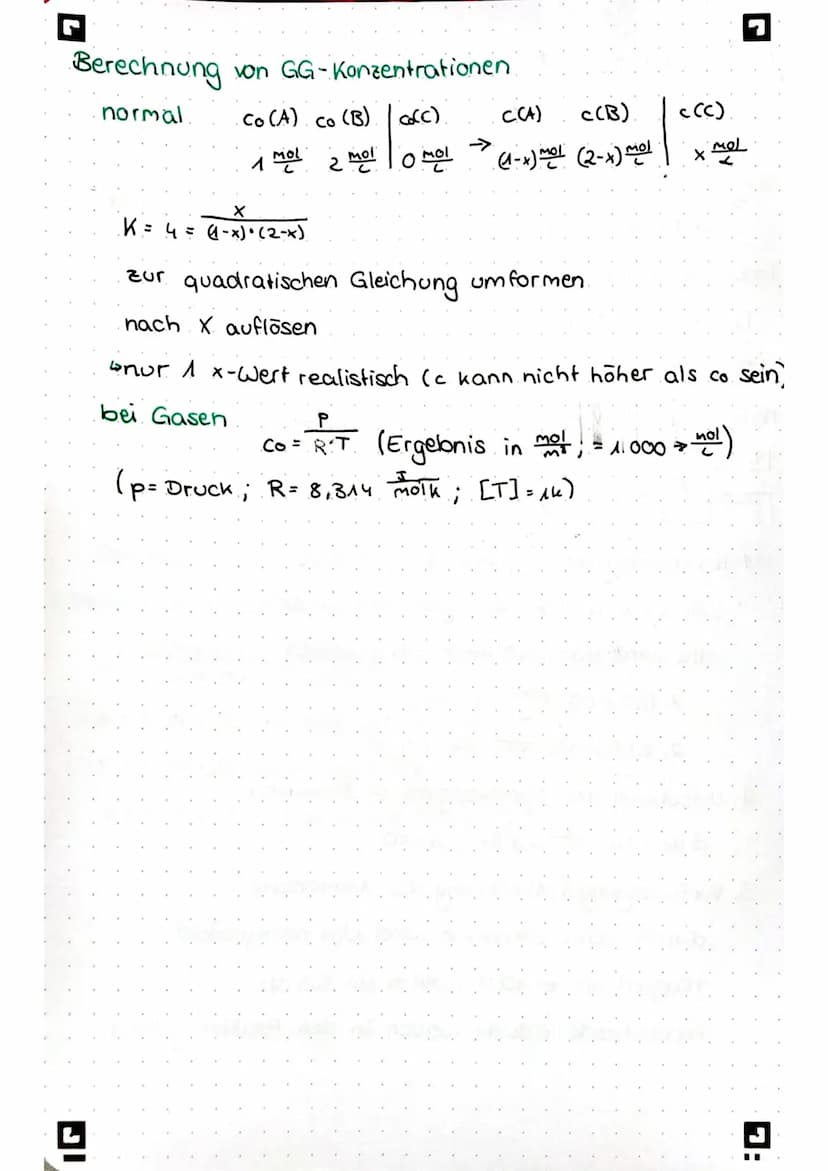 Berechnung von GG-Konzentrationen
normal c₀(A) c₀(B) | c₀(C) c(A) c(B) | c(C)
1 mol/L 2 mol/L | 0 mol/L → (1-x) mol/L (2-x) mol/L | x mol/L
K = 4 = x/((1-x)·(2-x))
zur quadratischen Gleichung umformen
nach x auflösen
↳nur 1 x-Wert realistisch (c kann nicht höher als c₀ sein)
bei Gasen
c₀ = P/(R·T) (Ergebnis in mol/m³ ; ÷ 1.000 → mol/L)
(p = Druck ; R = 8,314 J/molK ; [T] = 1K)